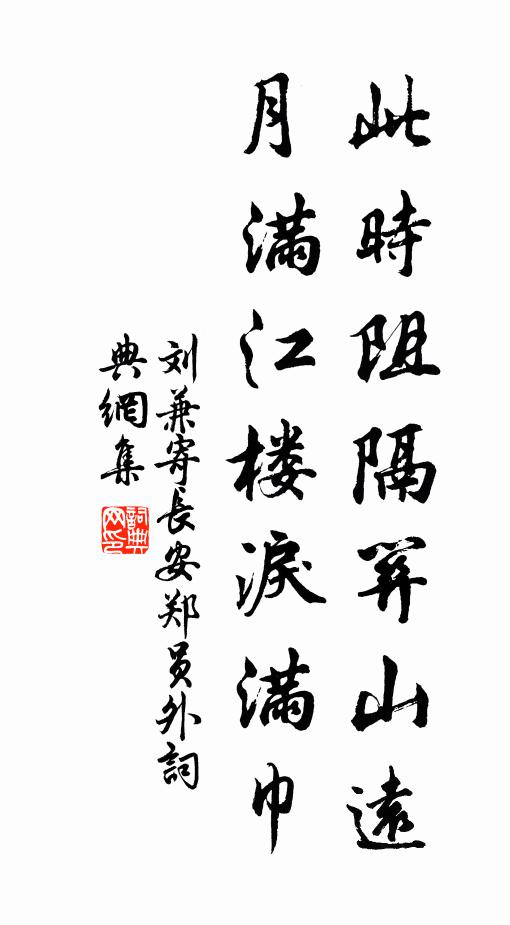 此時阻隔關山遠
月滿江楼淚滿巾
刘兼寄長安郑員外詞
典網集
詞典網印